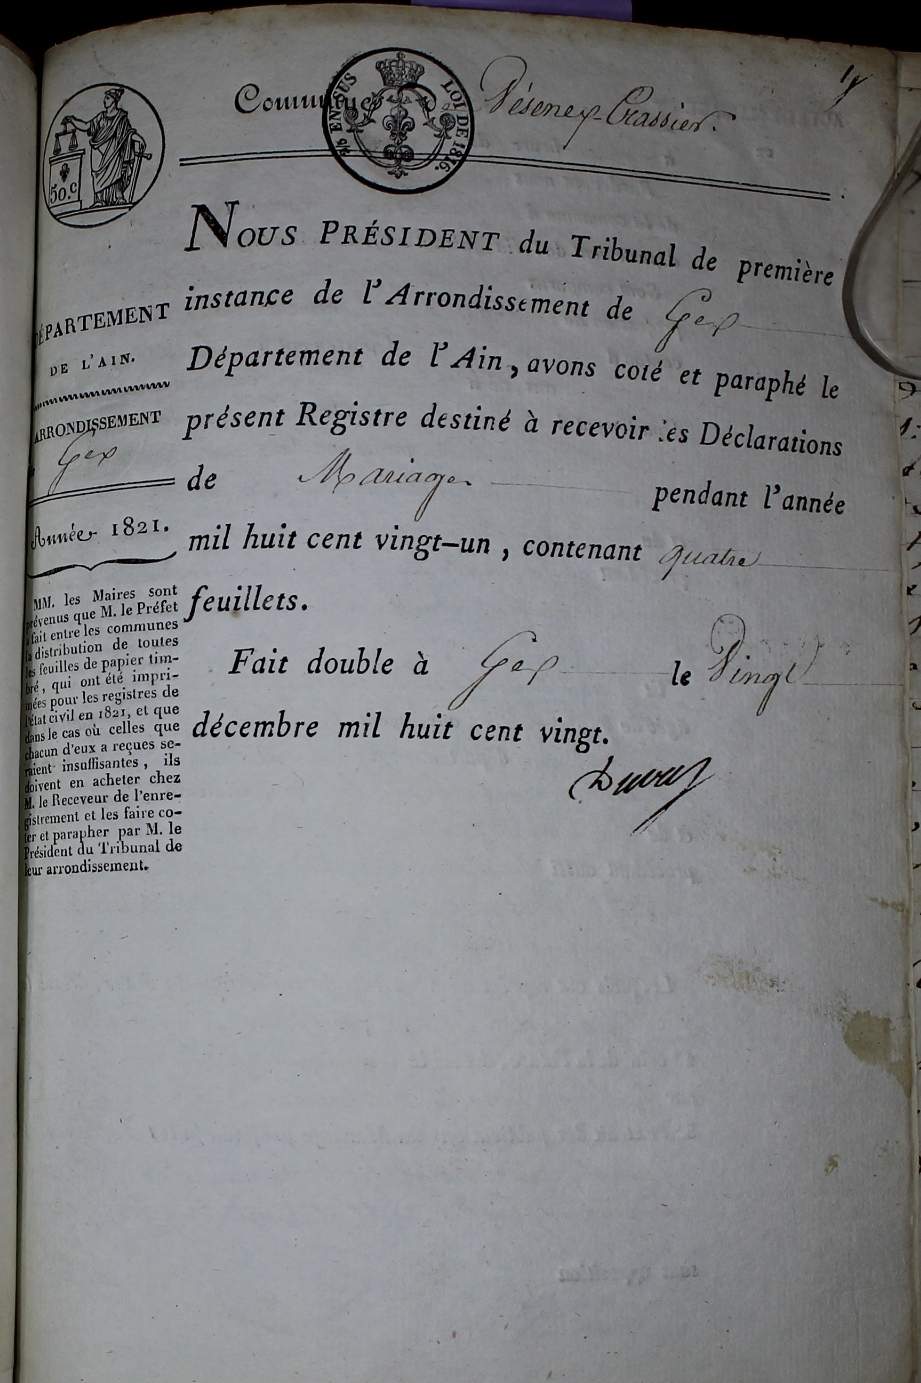 Commune de Vésenex-Crassier.
EN SUS LOI DE 1816.
50.c
DÉPARTEMENT
DE L'AIN.
ARRONDISSEMENT
Gex
Année 1821.
MM. les Maires sont
prévenus que M. le Préfet
a fait entre les communes
la distribution de toutes
les feuilles de papier tim-
bré, qui ont été impri-
mées pour les registres de
l'état civil en 1821, et que
dans le cas où celles que
chacun d'eux a reçues se-
raient insuffisantes, ils
doivent en acheter chez
M. le Receveur de l'enre-
gistrement et les faire co-
ter et parapher par M. le
Président du Tribunal de
leur arrondissement.
NOUS PRÉSIDENT du Tribunal de première
instance de l'Arrondissement de Gex
Département de l'Ain, avons coté et paraphé le
présent Registre destiné à recevoir les Déclarations
de Mariage pendant l'année
mil huit cent vingt-un, contenant quatre
feuillets.
Fait double à Gex le Vingt
décembre mil huit cent vingt.